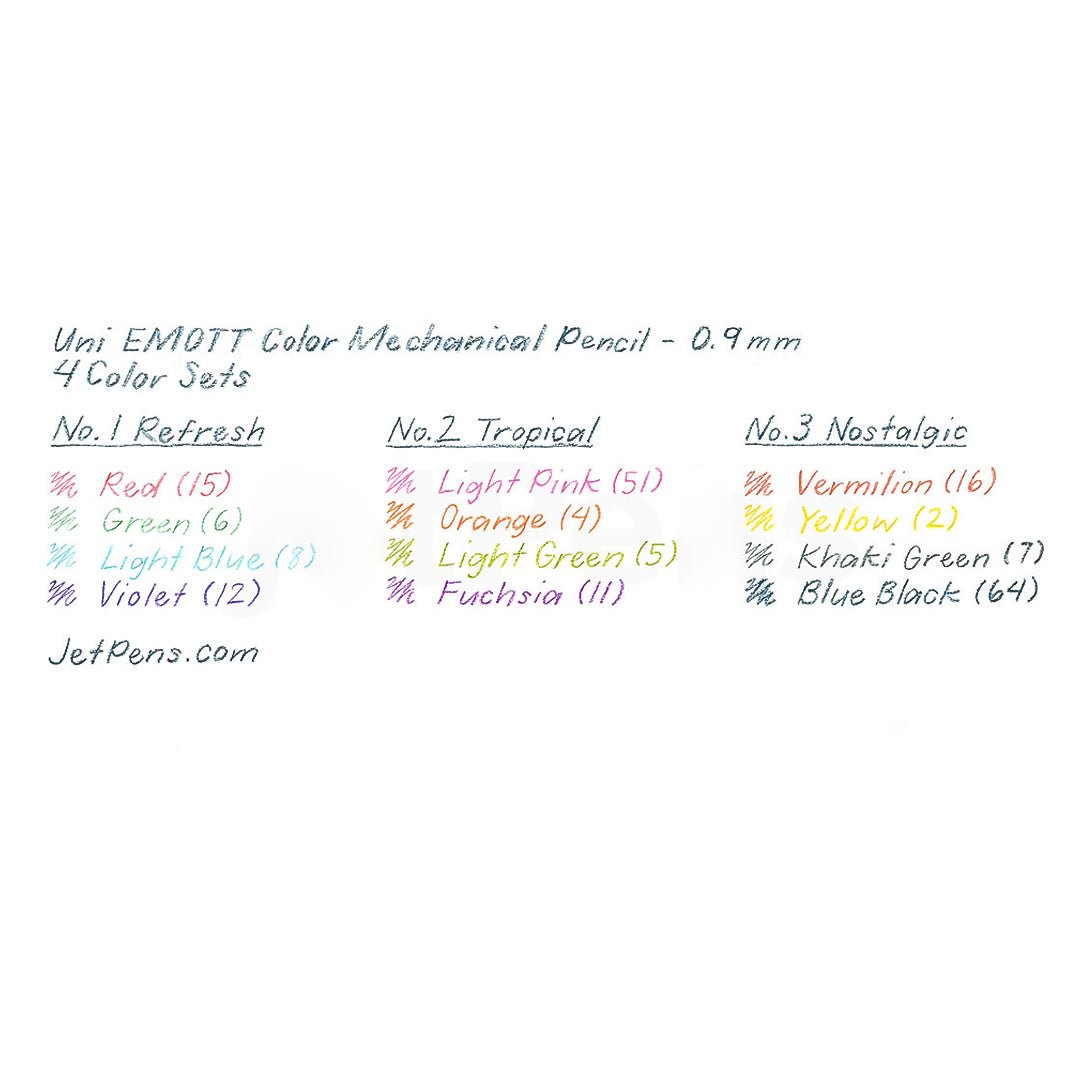 Uni EMOTT Color Mechanical Pencil - 0.9mm
4 Color Sets
No.1 Refresh
Red (15)
Green (6)
Light Blue (8)
Violet (12)
No.2 Tropical
Light Pink (51)
Orange (4)
Light Green (5)
Fuchsia (11)
No.3 Nostalgic
Vermilion (16)
Yellow (2)
Khaki Green (7)
Blue Black (64)
JetPens.com